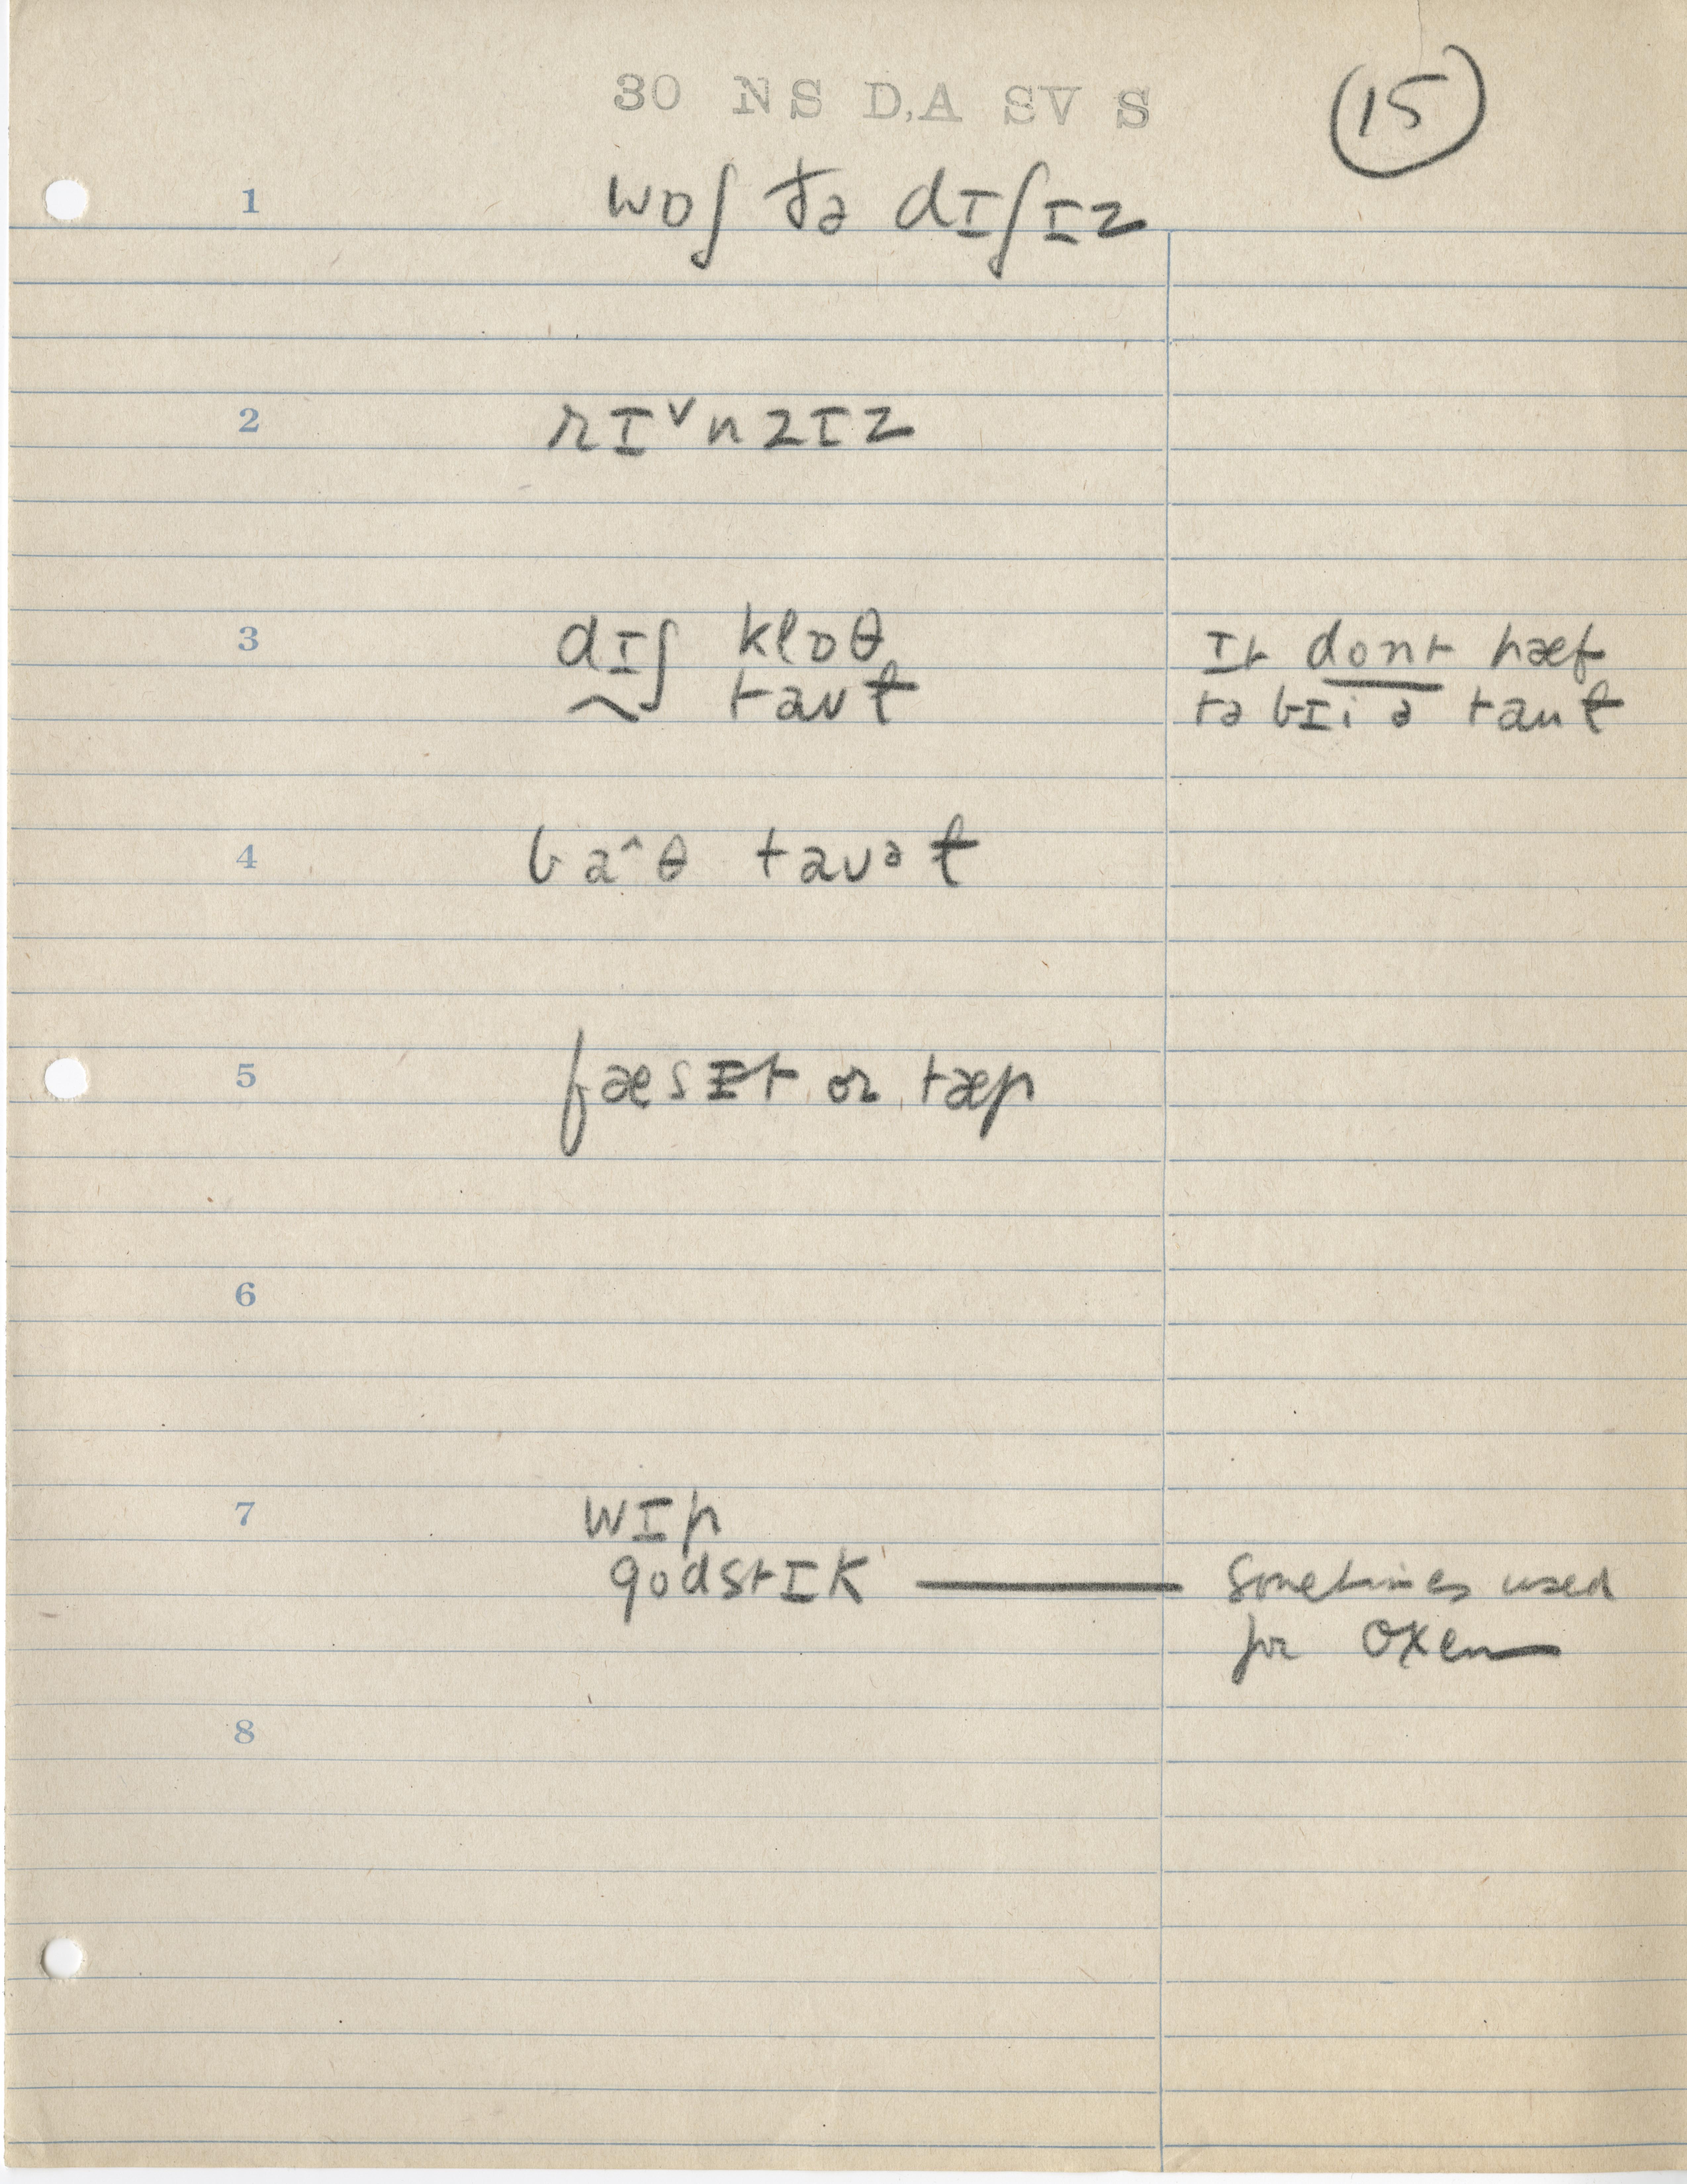 30 NS D,A SV S
15
1 wɒʃ ðə dɪʃɪz
2 rɪ˅nzɪz
3 dɪʃ klɒθ It dont hæf
taʊɫ tə bɪi ə taʊɫ
4 ba^θ taʊᵊɫ
5 fæsɪt or tæp
6
7 wɪp
gɒdstɪk — sometimes used
for oxen
8